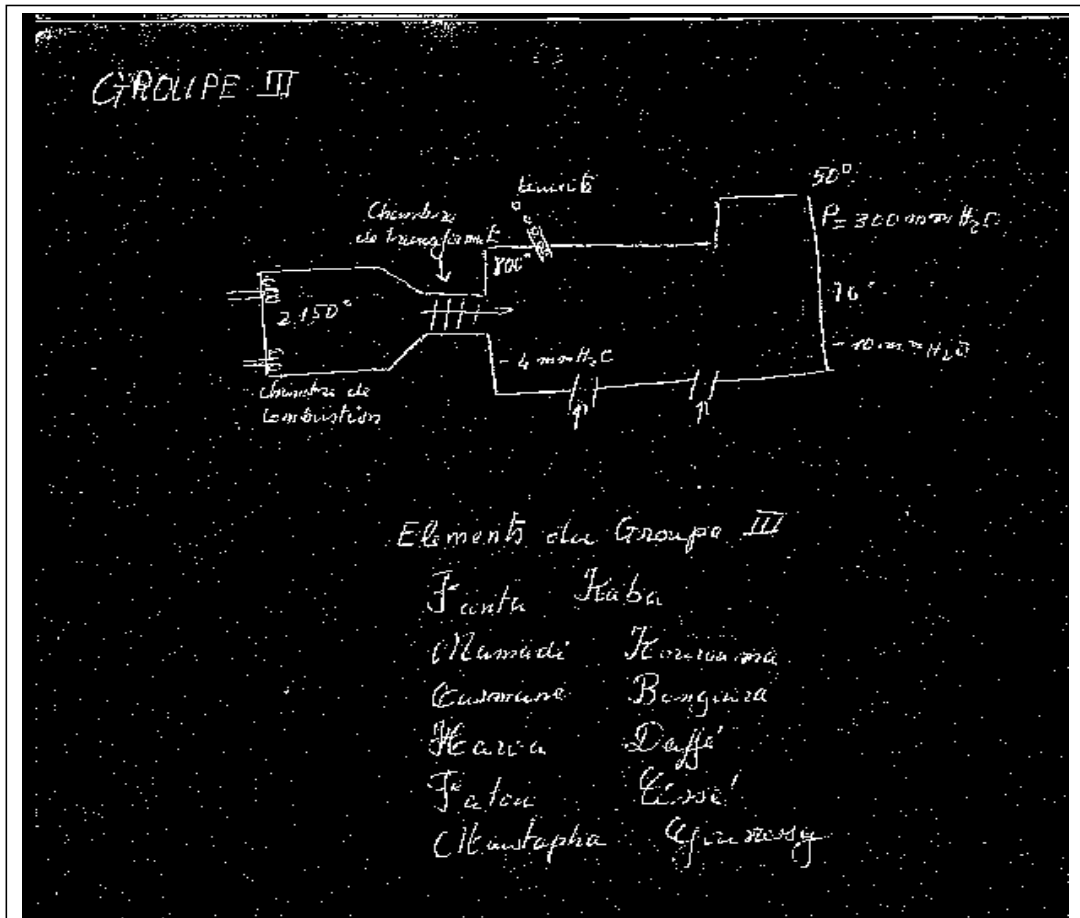 GROUPE III
Chambre
de transformat
800°
50°
P= 300 mm H₂O
2150°
- 4 mm H₂O
- 10 mm H₂O
Chambre de
Combustion
Elements du Groupe III
Fanta Kaba
Mamadi Kourouma
Ousmane Bangoura
Hawa Daffé
Fatou Cissé
Moustapha